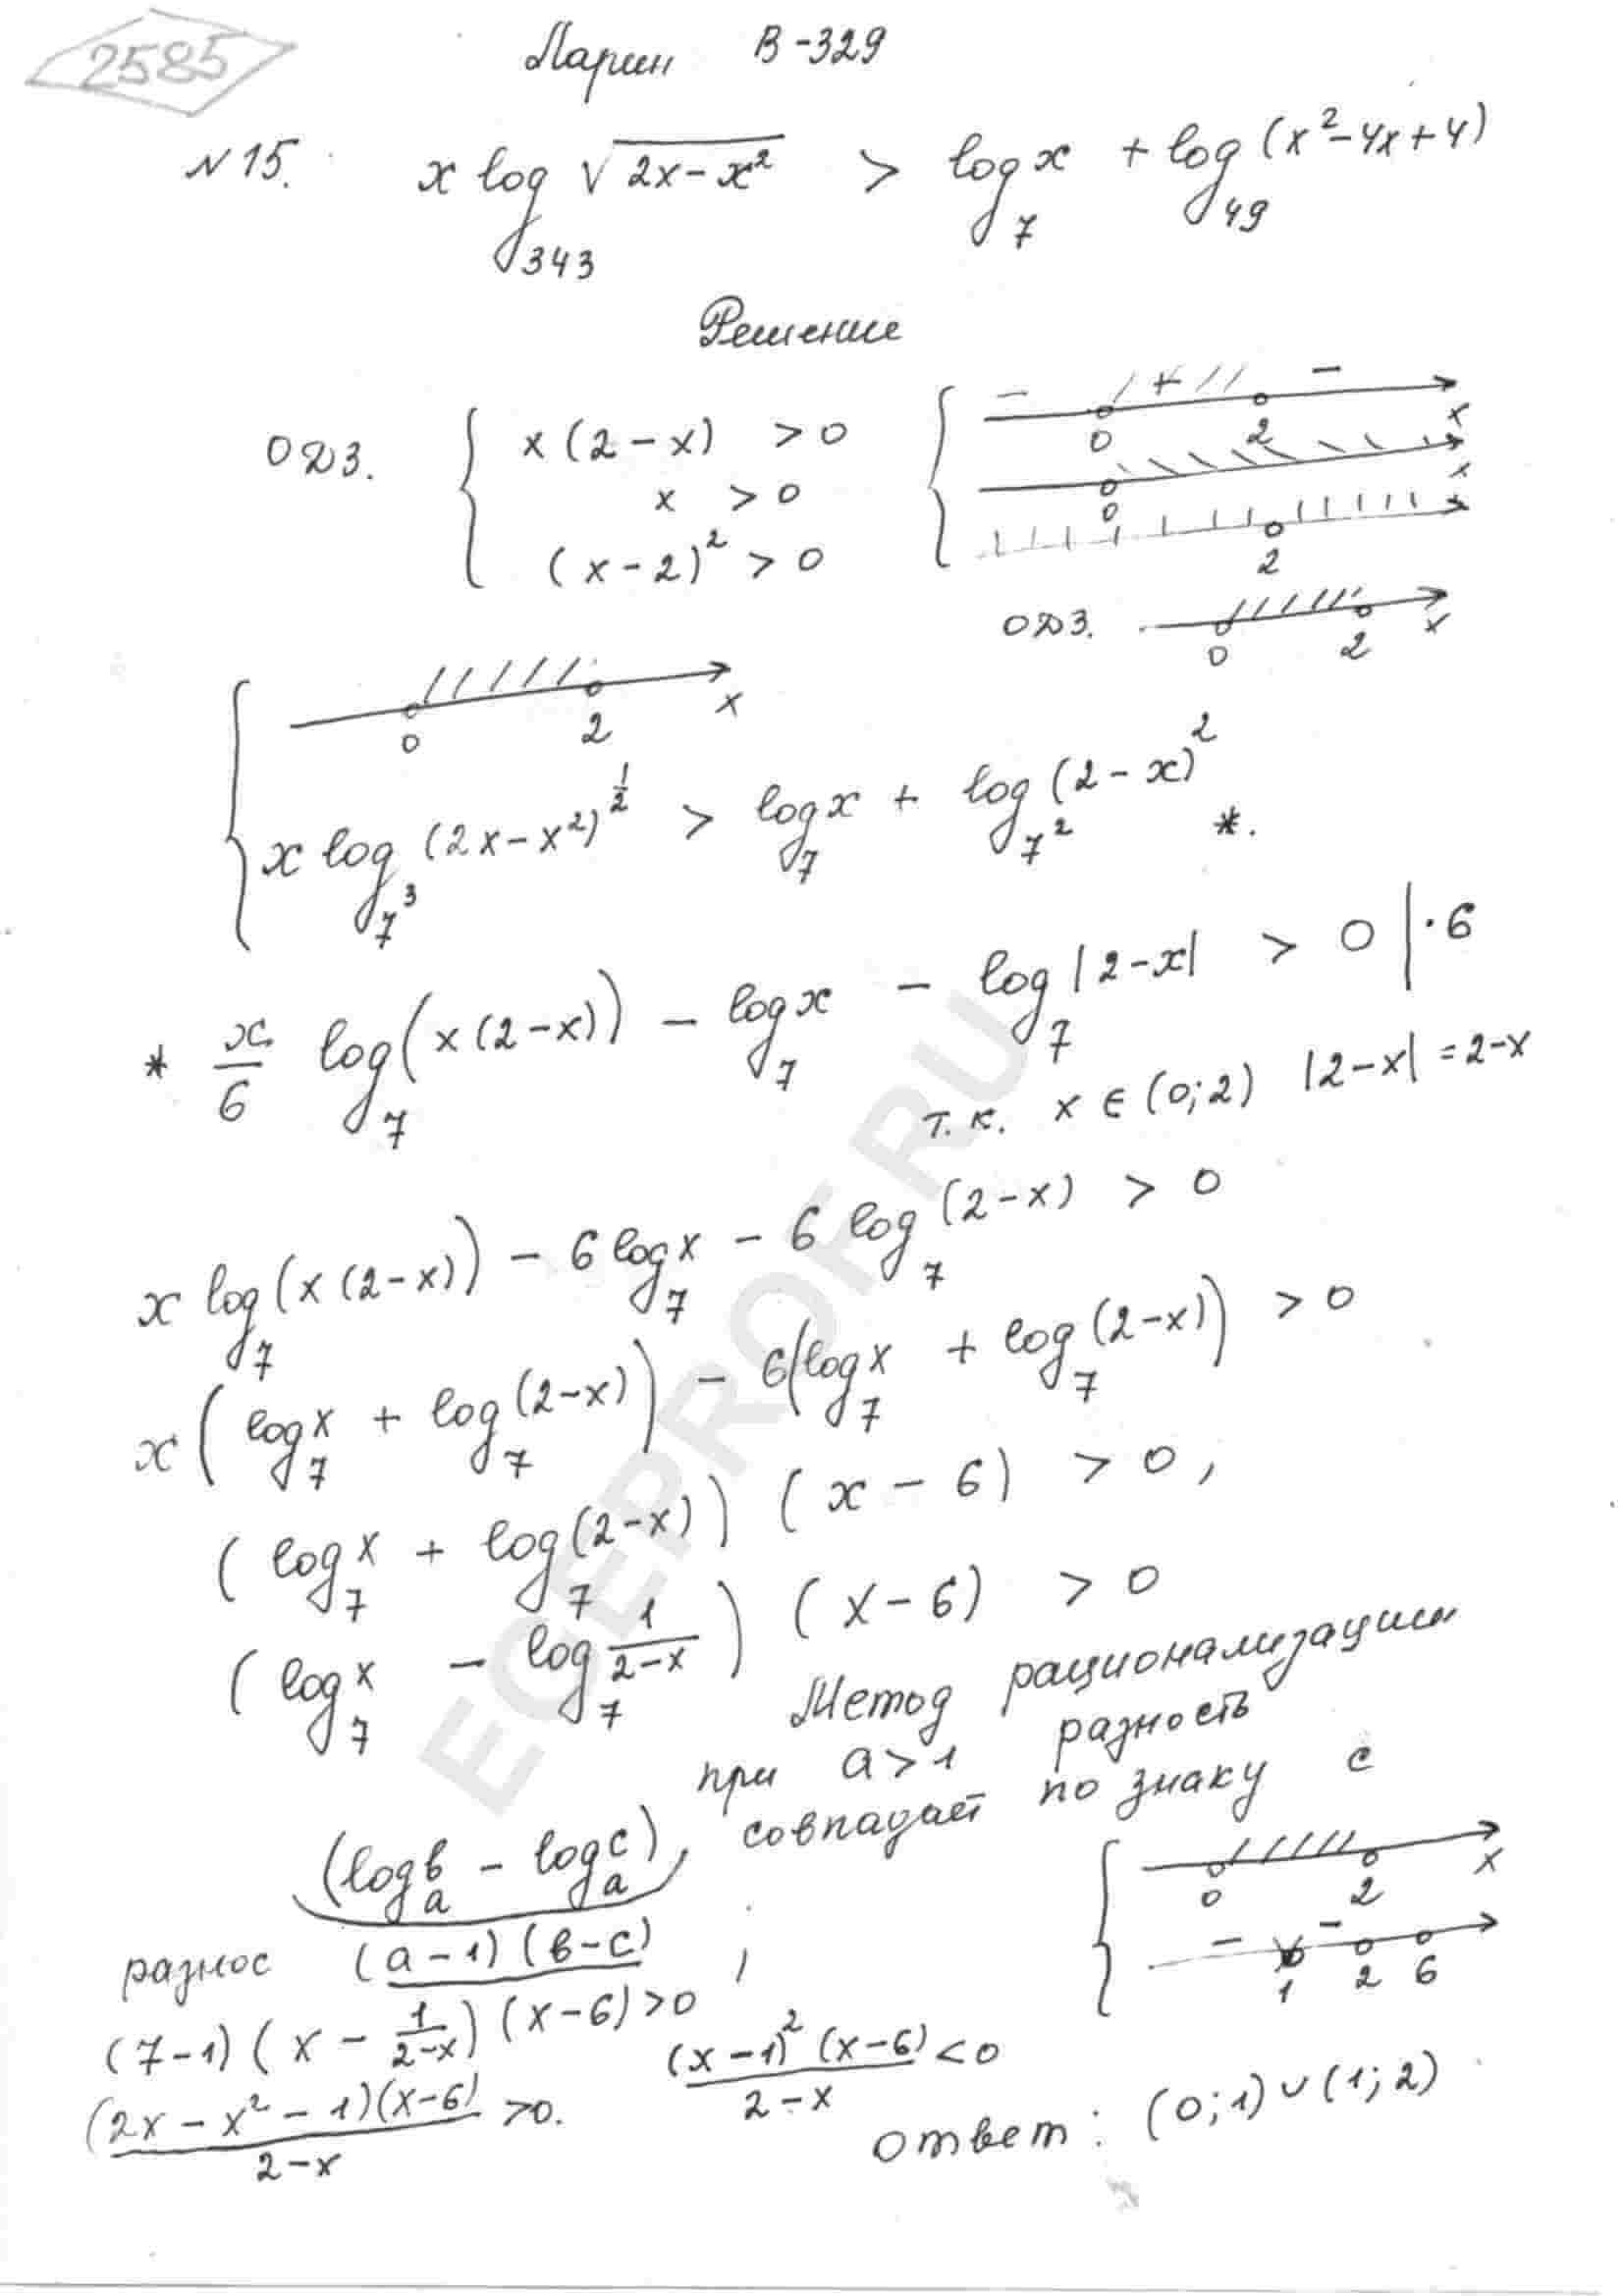 2585
Ларин В-329
N15. x log_343 √(2x-x²) > log_7 x + log_49 (x²-4x+4)
Решение
ОДЗ. { x(2-x) > 0
x > 0
(x-2)² > 0
- + - 0 2 x
0 x
2 x
ОДЗ. 0 2 x
{ 0 2 x
x log_7³ (2x-x²)^(1/2) > log_7 x + log_7² (2-x)² *.
* x/6 log_7 (x(2-x)) - log_7 x - log_7 |2-x| > 0 | ·6
т.к. x ∈ (0;2) |2-x| = 2-x
x log_7 (x(2-x)) - 6 log_7 x - 6 log_7 (2-x) > 0
x (log_7 x + log_7 (2-x)) - 6(log_7 x + log_7 (2-x)) > 0
(log_7 x + log_7 (2-x)) (x-6) > 0,
(log_7 x - log_7 1/(2-x)) (x-6) > 0
Метод рационализации
при a>1 разность
(log_a в - log_a c), совпадает по знаку с
разнос (a-1)(в-c),
{ 0 2 x
- - 1 2 6
(7-1)(x - 1/(2-x))(x-6)>0
(2x-x²-1)(x-6)/(2-x) >0. (x-1)²(x-6)/(2-x) <0
ответ: (0;1)∪(1;2)
EGEPROF.RU